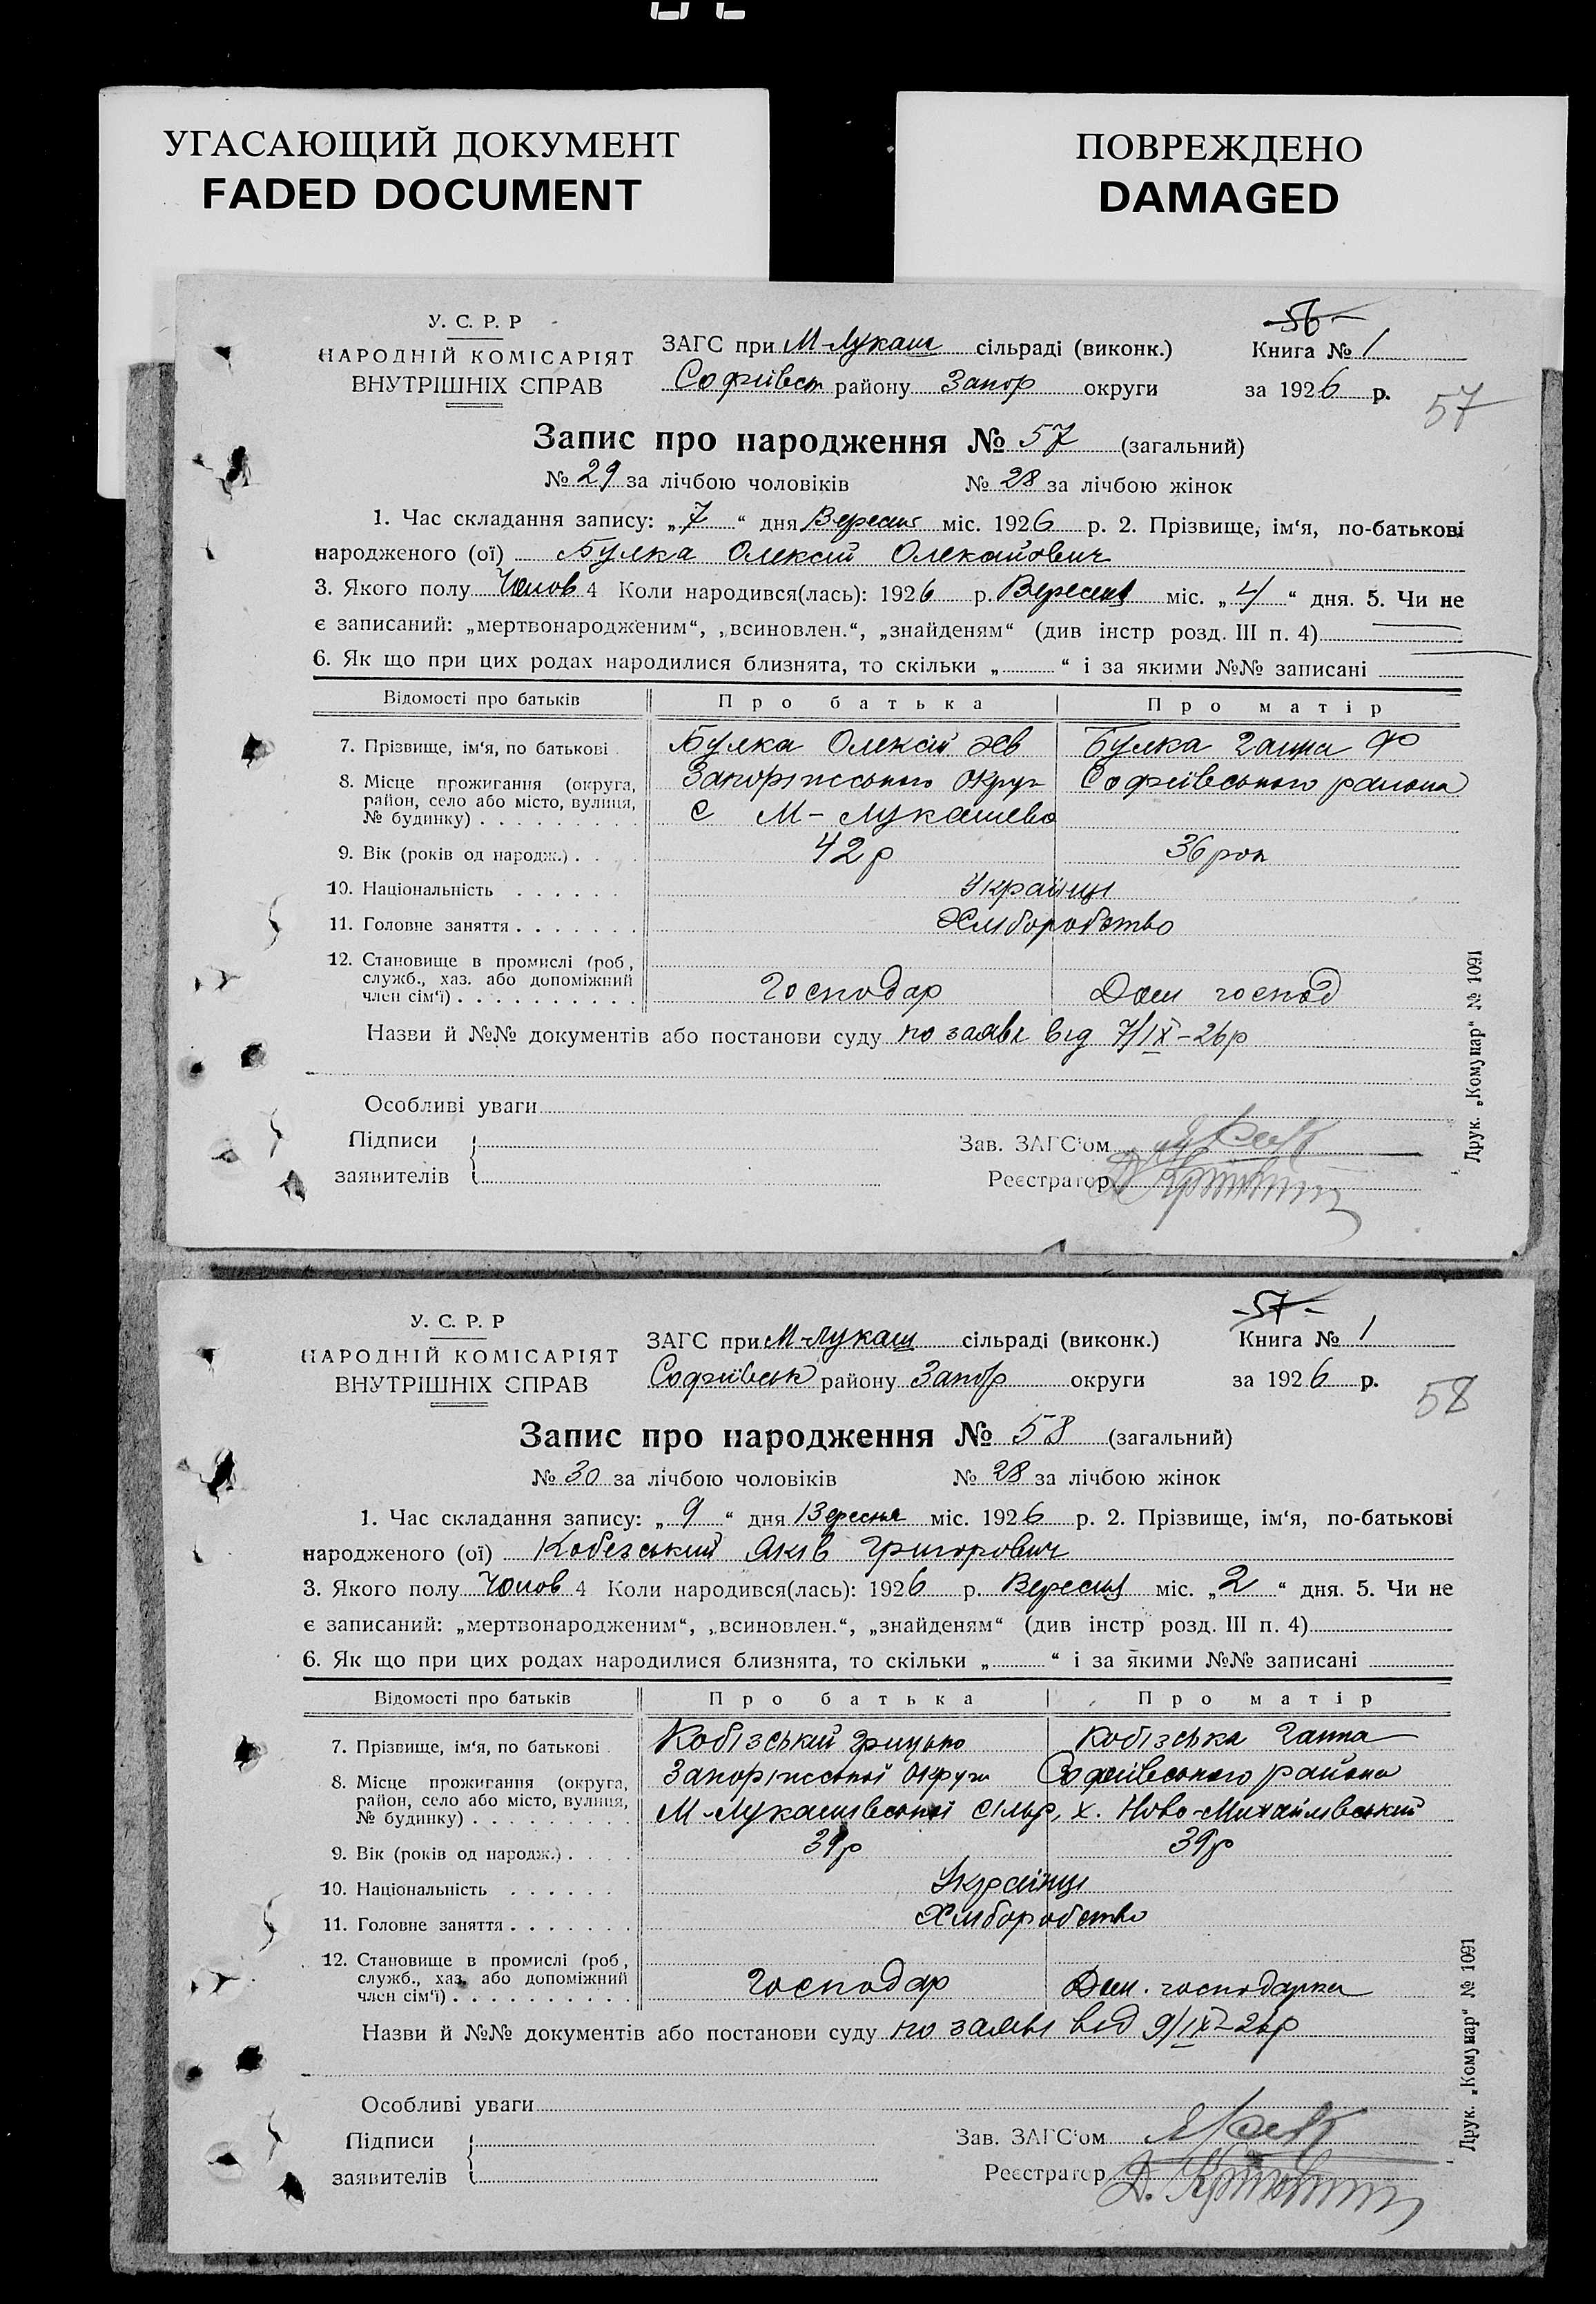 УГАСАЮЩИЙ ДОКУМЕНТ
FADED DOCUMENT
ПОВРЕЖДЕНО
DAMAGED
У. С. Р. Р
НАРОДНІЙ КОМІСАРІЯТ
ВНУТРІШНІХ СПРАВ
ЗАГС при М-Лукаш сільраді (виконк.)
Софиівськ району Запор округи
56
Книга № 1
за 1926 р.
57
Запис про народження № 57 (загальний)
№ 29 за лічбою чоловіків № 28 за лічбою жінок
1. Час складання запису: „7“ дня Вересня міс. 1926 р. 2. Прізвище, ім‘я, по-батькові
народженого (ої) Булка Олексій Олексійович
3. Якого полу Чолов 4 Коли народився(лась): 1926 р. Вересня міс. „4“ дня. 5. Чи не
є записаний: „мертвонародженим“, „всиновлен.“, „знайденям“ (див інстр розд. III п. 4)
6. Як що при цих родах народилися близнята, то скільки „ “ і за якими №№ записані
Відомості про батьків Про батька Про матір
7. Прізвище, ім‘я, по батькові Булка Олексій Булка Ганна Ф
8. Місце прожигання (округа, Запоріжського округ Софиівського района
район, село або місто, вулиця,
№ будинку) с М-Лукашево
9. Вік (років од народж.) 42 р 36 рок
10. Національність Українці
11. Головне заняття Хліборобство
12. Становище в промислі (роб,
служб., хаз. або допоміжний
член сім‘ї) Господар Дом господ
Назви й №№ документів або постанови суду по заяві від 7/IX-26 р
Особливі уваги
Підписи
заявителів
Зав. ЗАГС‘ом
Реєстратор
Друк. „Комунар“ № 1091
У. С. Р. Р
НАРОДНІЙ КОМІСАРІЯТ
ВНУТРІШНІХ СПРАВ
ЗАГС при М-Лукаш сільраді (виконк.)
Софиівськ району Запор округи
-57-
Книга № 1
за 1926 р.
58
Запис про народження № 58 (загальний)
№ 30 за лічбою чоловіків № 28 за лічбою жінок
1. Час складання запису: „9“ дня Вересня міс. 1926 р. 2. Прізвище, ім‘я, по-батькові
народженого (ої) Кобезський Яків Григорович
3. Якого полу Чолов 4 Коли народився(лась): 1926 р. Вересня міс. „2“ дня. 5. Чи не
є записаний: „мертвонародженим“, „всиновлен.“, „знайденям“ (див інстр розд. III п. 4)
6. Як що при цих родах народилися близнята, то скільки „ “ і за якими №№ записані
Відомості про батьків Про батька Про матір
7. Прізвище, ім‘я, по батькові Кобізський Грицько Кобізська Ганна
8. Місце прожигання (округа, Запоріжської округи Софиівського района
район, село або місто, вулиця,
№ будинку) М-Лукашівської сільр, х. Ново-Михайлівський
9. Вік (років од народж.) 39 р 39 р
10. Національність Українці
11. Головне заняття Хліборобство
12. Становище в промислі (роб,
служб., хаз. або допоміжний
член сім‘ї) Господар Дом. господарка
Назви й №№ документів або постанови суду по заяві від 9/IX-26 р
Особливі уваги
Підписи
заявителів
Зав. ЗАГС‘ом
Реєстратор Д.
Друк. „Комунар“ № 1091